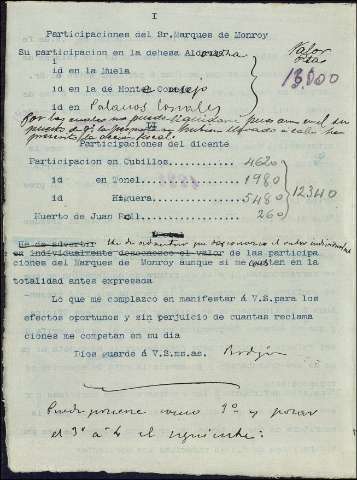 I
Participaciones del Sr.Marques de Monroy
Su participacion en la dehesa
id en la Muela
id en la de Monte Concejo
id en Palacios
Valor
13.000
Por las cuales no puede liquidarse pues aun en el su
puesto de
II
Participaciones del dicente
Participacion en Cubillos......... 4620
id en Tonel........... 1980
id Higuera......... 5480
Huerto de Juan Roll............. 260
12340
He de advertir que desconozco el valor individual
He de advertir
individualmente desconozco el valor de las participa
ciones del Marques de Monroy aunque si me constan en la
totalidad antes expresada
Lo que me complazco en manifestar á V.S.para los
efectos oportunos y sin perjuicio de cuantas reclama
ciones me competan en su dia
Dios guarde á V.S.ms.as. Badajoz
Puede ponerse como 1º y pasar
el 3º a 4 el siguiente: